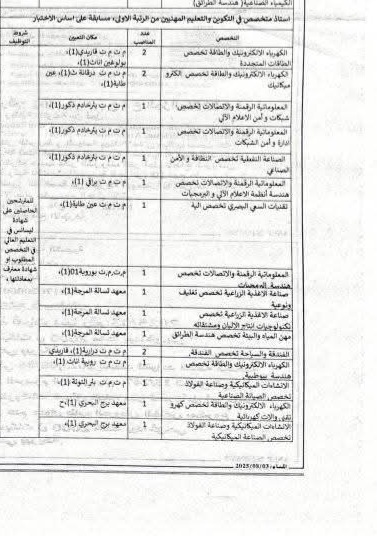 الكيمياء الصناعية( هندسة الطرائق)
استاذ متخصص في التكوين والتعليم المهنيين من الرتبة الاولى، مسابقة على اساس الاختبار
التخصص
عدد المناصب
مكان التعيين
شروط التوظيف
الكهرباء الالكترونيك والطاقة تخصص
2
م ت م ت فاريدي(1)،
الطاقات المتجددة
بولوغين اناث(1)،
الكهرباء الالكترونيك والطاقة تخصص الكترو
2
م ت م ت درقانة ث(1)، عين
ميكانيك
طاية(1)،
المعلوماتية الرقمنة والاتصالات تخصص
1
م ت م ت بئرخادم ذكور(1)،
شبكات و أمن الاعلام الآلي
المعلوماتية الرقمنة والاتصالات تخصص
1
م ت م ت بئرخادم ذكور(1)،
ادارة و أمن الشبكات
الصناعة النفطية تخصص النظافة و الأمن
1
م ت م ت بئرخادم ذكور(1)،
الصناعي
المعلوماتية الرقمنة والاتصالات تخصص
1
م ت م ت براقي (1)،
هندسة أنظمة الاعلام الآلي و البرمجيات
تقنيات السعي البصري تخصص الية
1
م ت م ت عين طاية(1)،
للمترشحين
الحاصلين على
شهادة
ليسانس في
التعليم العالي
في التخصص
المطلوب او
شهادة معارف
بمعادلتها ،
المعلوماتية الرقمنة والاتصالات تخصص
1
م.ت.م.ت بوروبة01(1)،
هندسة البرمجيات
صناعة الاغذية الزراعية تخصص تغليف
1
معهد تسالة المرجة(1)،
ونوعية
صناعة الاغذية الزراعية تخصص
1
معهد تسالة المرجة(1)،
تكنولوجيات انتاج الالبان ومشتقاته
مهن المياه والبيئة تخصص هندسة الطرائق
1
معهد تسالة المرجة(1)،
الفندقة والسياحة تخصص الفندقة،
2
م ت م ت درارية(1)، فاريدي
الكهرباء الالكترونيك والطاقة تخصص
1
م ت م ت رويبة اناث (1)،
الانشاءات الميكانيكية وصناعة الفولاذ
1
م ت م ت بئر التوتة (1)،
تخصص الصيانة الصناعية
الكهرباء الالكترونيك والطاقة تخصص كهرو
1
معهد برج البحري (1)،ح
تقني والات كهربائية
الانشاءات الميكانيكية وصناعة الفولاذ
1
معهد برج البحري (1)،
تخصص الصناعة الميكانيكية
المساء، 2025/08/03